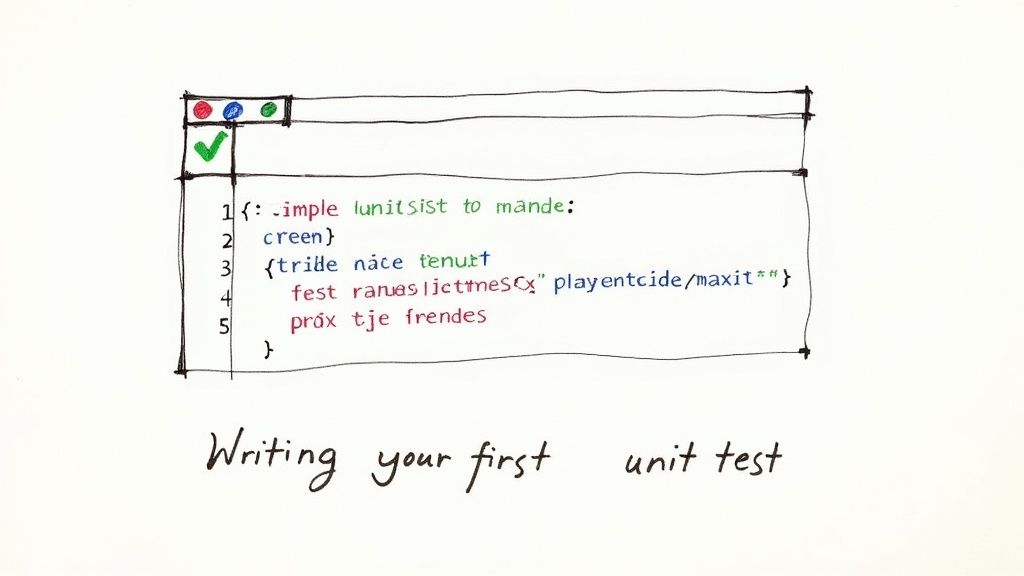 1 {: .imple lunitsist to mande:
2 creen}
3 {tride náce tenuxt
4 fest
5 próx tje frendes
}
Writing your first unit test